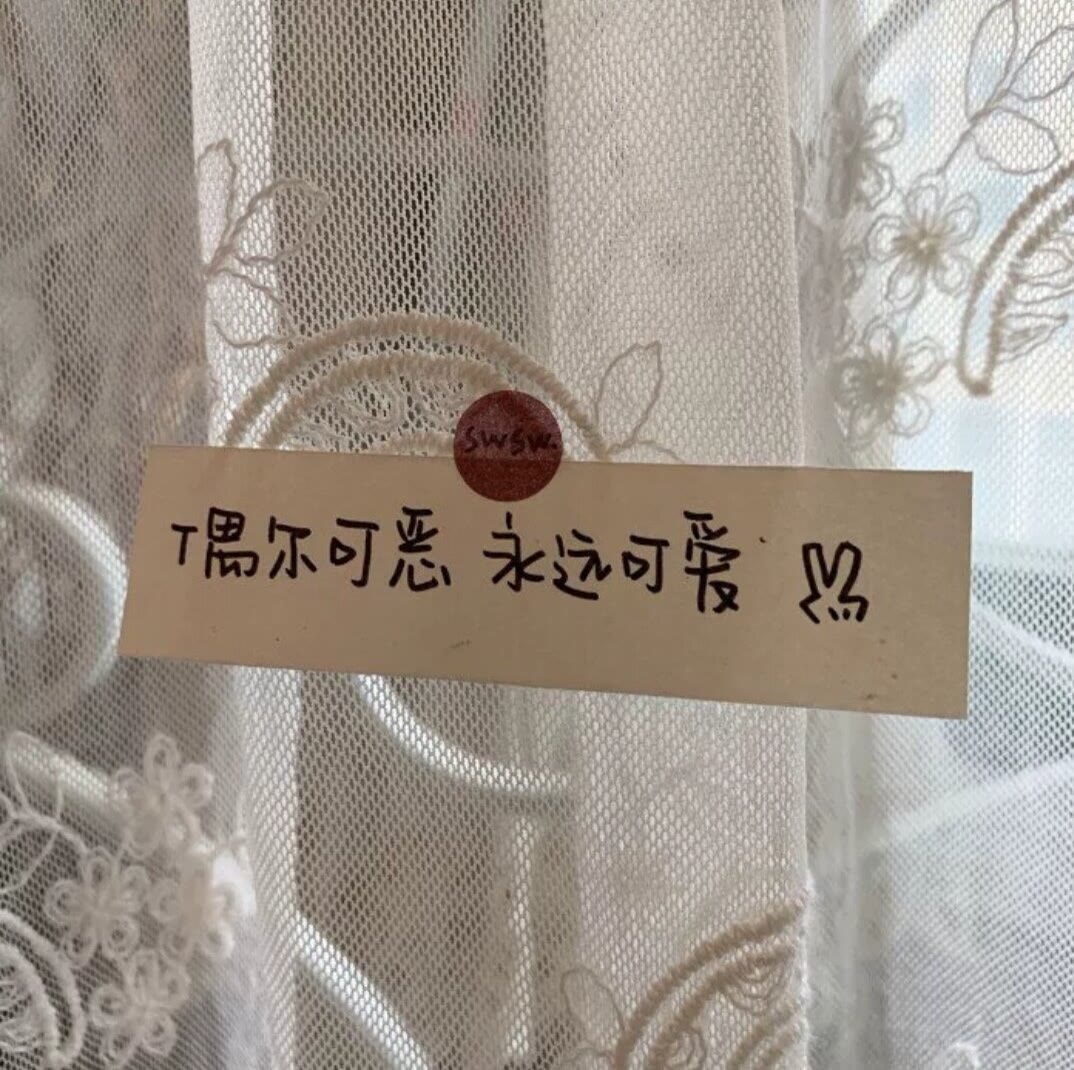 swsw.
偶尔可恶 永远可爱